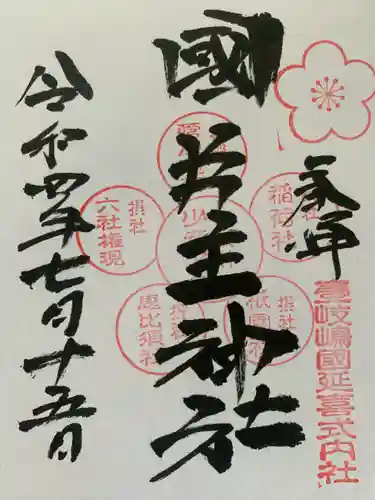 奉拝
壹岐嶋國延喜式内社
國片主神社
令和四年七月十五日
摂社
稲荷社
摂社
六社権現
摂社
祇園社
摂社
恵比須社